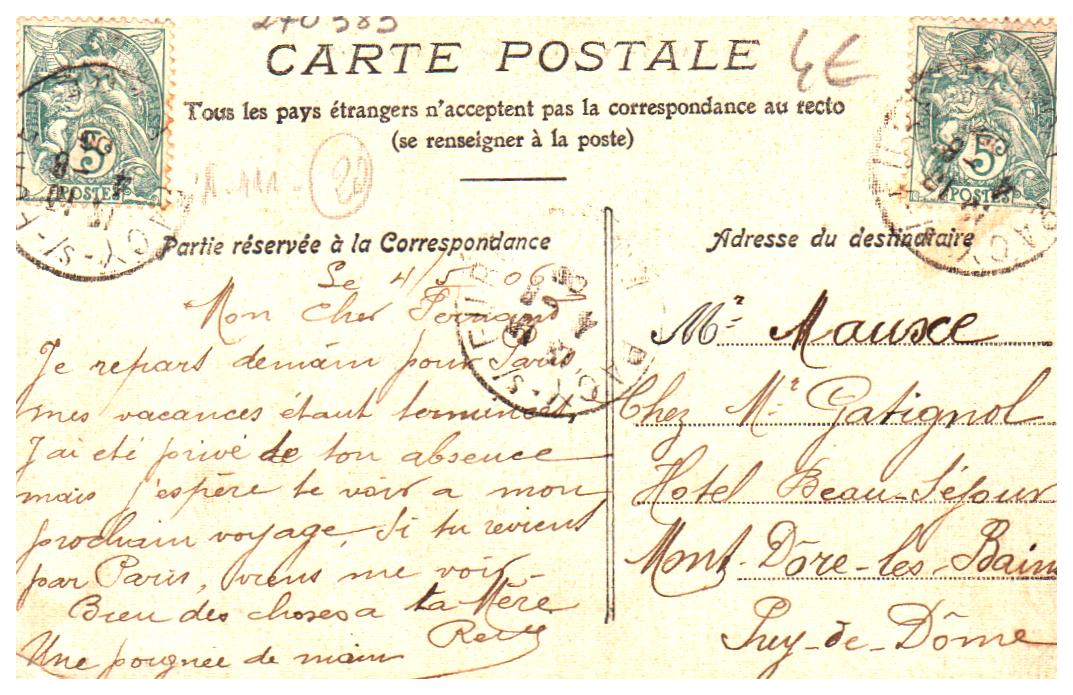 270383
CARTE POSTALE
4€
Tous les pays étrangers n'acceptent pas la correspondance au recto
(se renseigner à la poste)
20
5
POSTES
5
POSTES
PACY-S/-EURE
Partie réservée à la Correspondance
Le 4/5 06
Mon Cher Fernand
Je repars demain pour Paris
mes vacances étant terminées,
J'ai été privé de ton absence
mais j'espère te voir a mon
prochain voyage, Si tu reviens
par Paris, viens me voir
Bien des choses a ta Mère
Une poignée de main
Adresse du destinataire
Mr Mausce
Chez Mr Gatignol
Hotel Beau-Séjour
Mont-Dôre-les-Bains
Puy-de-Dôme